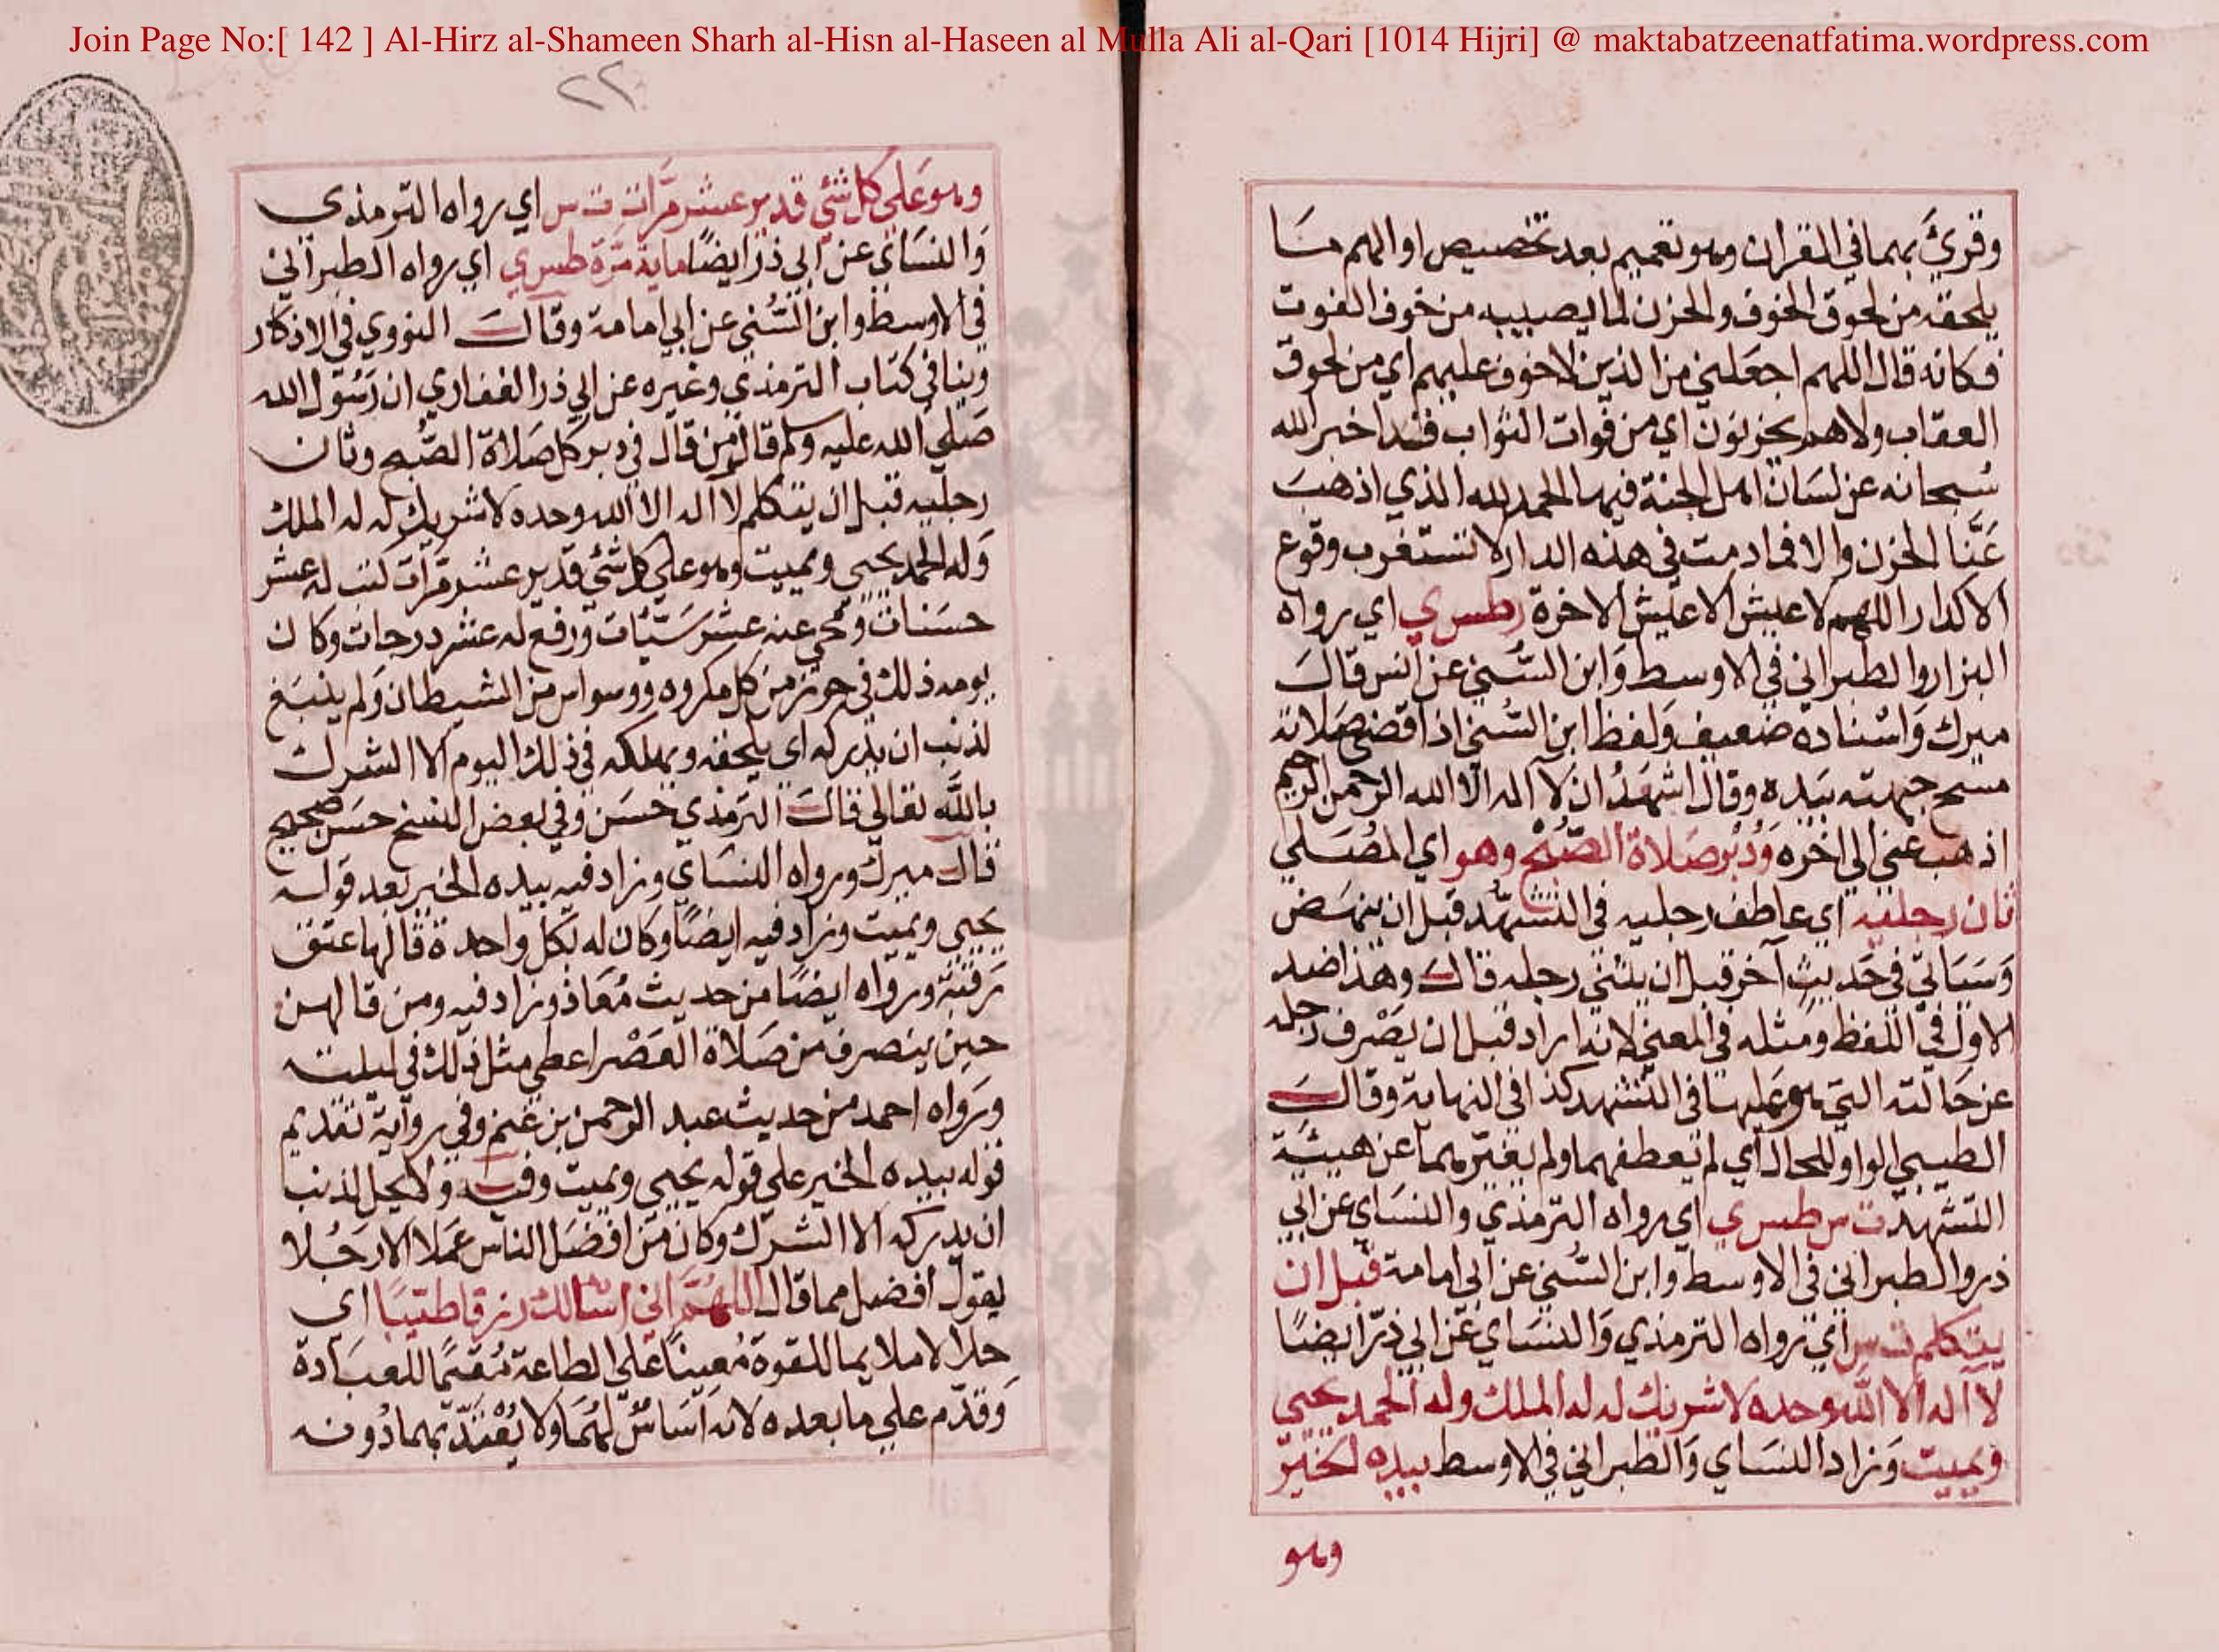 Join Page No:[ 142 ] Al-Hirz al-Shameen Sharh al-Hisn al-Haseen al Mulla Ali al-Qari [1014 Hijri] @ maktabatzeenatfatima.wordpress.com
وقرئ بهما في القران وهو تعميم بعد تخصيص او الهم ما
يلحقه من لحوق الخوف والحزن لما يصيبه من خوف الفوت
فكانه قال اللهم اجعلني من الذين لا خوف عليهم اي من لحوق
العقاب ولا هم يحزنون اي من فوات الثواب فقد اخبر الله
سبحانه عن لسان اهل الجنة فيها الحمد لله الذي اذهب
عنا الحزن والا فما دمت في هذه الدار لا تستغرب وقوع
الاكدار اللهم لا عيش الا عيش الاخرة ر طس ي اي رواه
البزار والطبراني في الاوسط وابن السني عن انس قال
ميرك واسناده ضعيف ولفظ ابن السني اذا قضى صلاته
مسح جبهته بيده وقال اشهد ان لا اله الا الله الرحمن الرحيم
اذهب عني الى اخره ودبر صلاة الصبح وهو اي المصلي
ثان رجليه اي عاطف رجليه في التشهد قبل ان ينهض
وسياتي في حديث آخر قبل ان يثني رجله قال وهذا ضد
الاول في اللفظ ومثله في المعنى لانه اراد قبل ان يصرف رجله
عن حالته التي هو عليها في التشهد كذا في النهاية وقال
الطيبي الواو للحال اي لم يعطفهما ولم يغيرهما عن هيئة
التشهد ت س طس ي اي رواه الترمذي والنساي عن ابي
ذر والطبراني في الاوسط وابن السني عن ابي امامة قبل ان
يتكلم ت س اي رواه الترمذي والنساي عن ابي ذر ايضا
لا اله الا الله وحده لا شريك له له الملك وله الحمد يحيي
ويميت وزاد النساي والطبراني في الاوسط بيده الخير
وهو
٢٢
وهو علي كل شئ قدير عشر مرات ت س اي رواه الترمذي
والنساي عن ابي ذر ايضا ماية مرة طس ي اي رواه الطبراني
في الاوسط وابن السني عن ابي امامة وقال النووي في الاذكار
وينا في كتاب الترمذي وغيره عن ابي ذر الغفاري ان رسول الله
صلي الله عليه وسلم قال من قال في دبر كل صلاة الصبح وثان
رجليه قبل ان يتكلم لا اله الا الله وحده لا شريك له له الملك
وله الحمد يحيي ويميت وهو علي كل شئ قدير عشر مرات كتب له عشر
حسنات ومحي عنه عشر سيئات ورفع له عشر درجات وكان
يومه ذلك في حرز من كل مكروه ووسواس من الشيطان ولم ينبغ
لذنب ان يدركه اي يلحقه ويهلكه في ذلك اليوم الا الشرك
بالله تعالي قال الترمذي حسن وفي بعض النسخ حسن صحيح
قال ميرك ورواه النساي وزاد فيه بيده الخير بعد قوله
يحيي ويميت وزاد فيه ايضا وكان له بكل واحدة قالها عتق
رقبة ورواه ايضا من حديث معاذ وزاد فيه ومن قالهن
حين ينصرف من صلاة العصر اعطي مثل ذلك في ليلته
ورواه احمد من حديث عبد الرحمن بن غنم وفي رواية تقديم
قوله بيده الخير علي قوله يحيي ويميت وفيه ولا يحل لذنب
ان يدركه الا الشرك وكان من افضل الناس عملا الا رجلا
يقول افضل مما قال اللهم اني اسالك رزقا طيبا اي
حلالا ملايما للقوة معينا علي الطاعة مقيما للعبادة
وقدم علي ما بعده لانه اساس لهما ولا يعتد بهما دونه